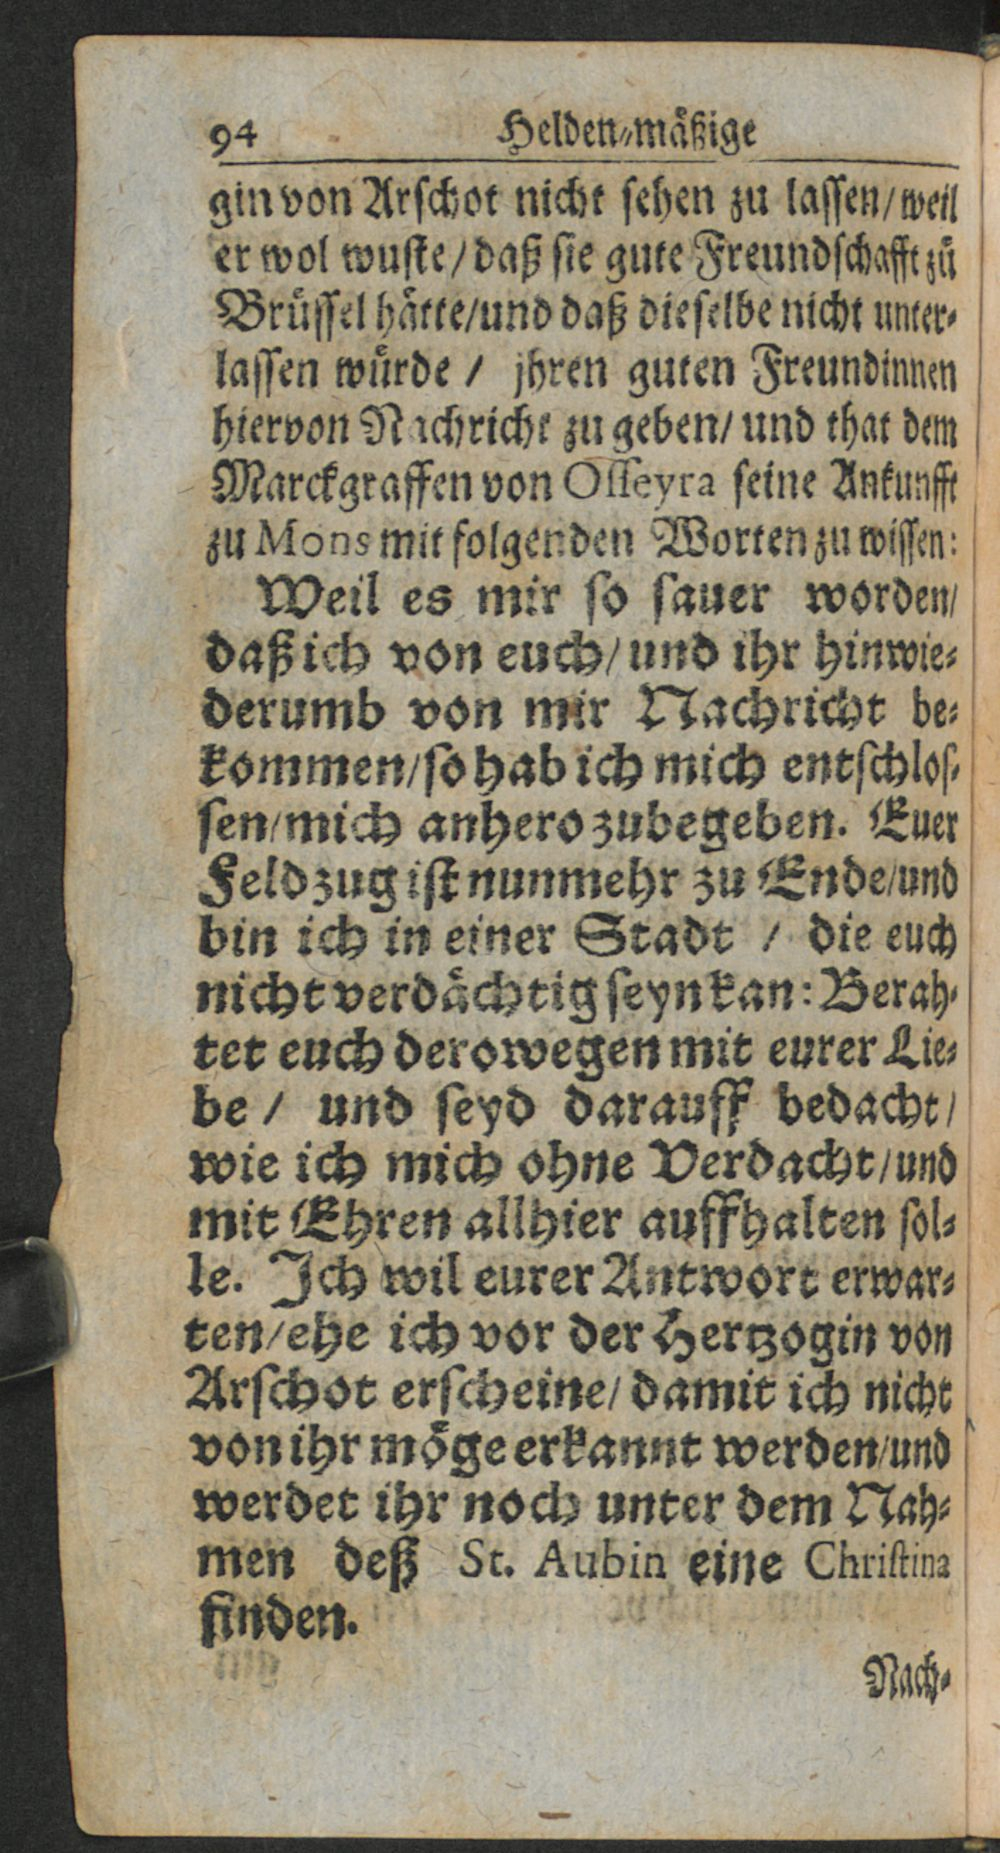 94 Helden-mäßige
gin von Arschot nicht sehen zu lassen/ weil
er wol wuste/ daß sie gute Freundschafft zu
Brüssel hätte/ und daß dieselbe nicht unter-
lassen würde / jhren guten Freundinnen
hiervon Nachricht zu geben/ und that dem
Marckgraffen von Osseyra seine Ankunfft
zu Mons mit folgenden Worten zu wissen:
Weil es mir so sauer worden/
daß ich von euch/ und ihr hinwie-
derumb von mir Nachricht be-
kommen/ so hab ich mich entschlos-
sen/ mich anhero zubegeben. Euer
Feldzug ist nunmehr zu Ende/ und
bin ich in einer Stadt / die euch
nicht verdächtig seyn kan: Berah-
tet euch derowegen mit eurer Lie-
be / und seyd darauff bedacht/
wie ich mich ohne Verdacht/ und
mit Ehren allhier auffhalten sol-
le. Ich wil eurer Antwort erwar-
ten/ ehe ich vor der Hertzogin von
Arschot erscheine/ damit ich nicht
von ihr möge erkannt werden/ und
werdet ihr noch unter dem Nah-
men deß St. Aubin eine Christina
finden.
Nach-